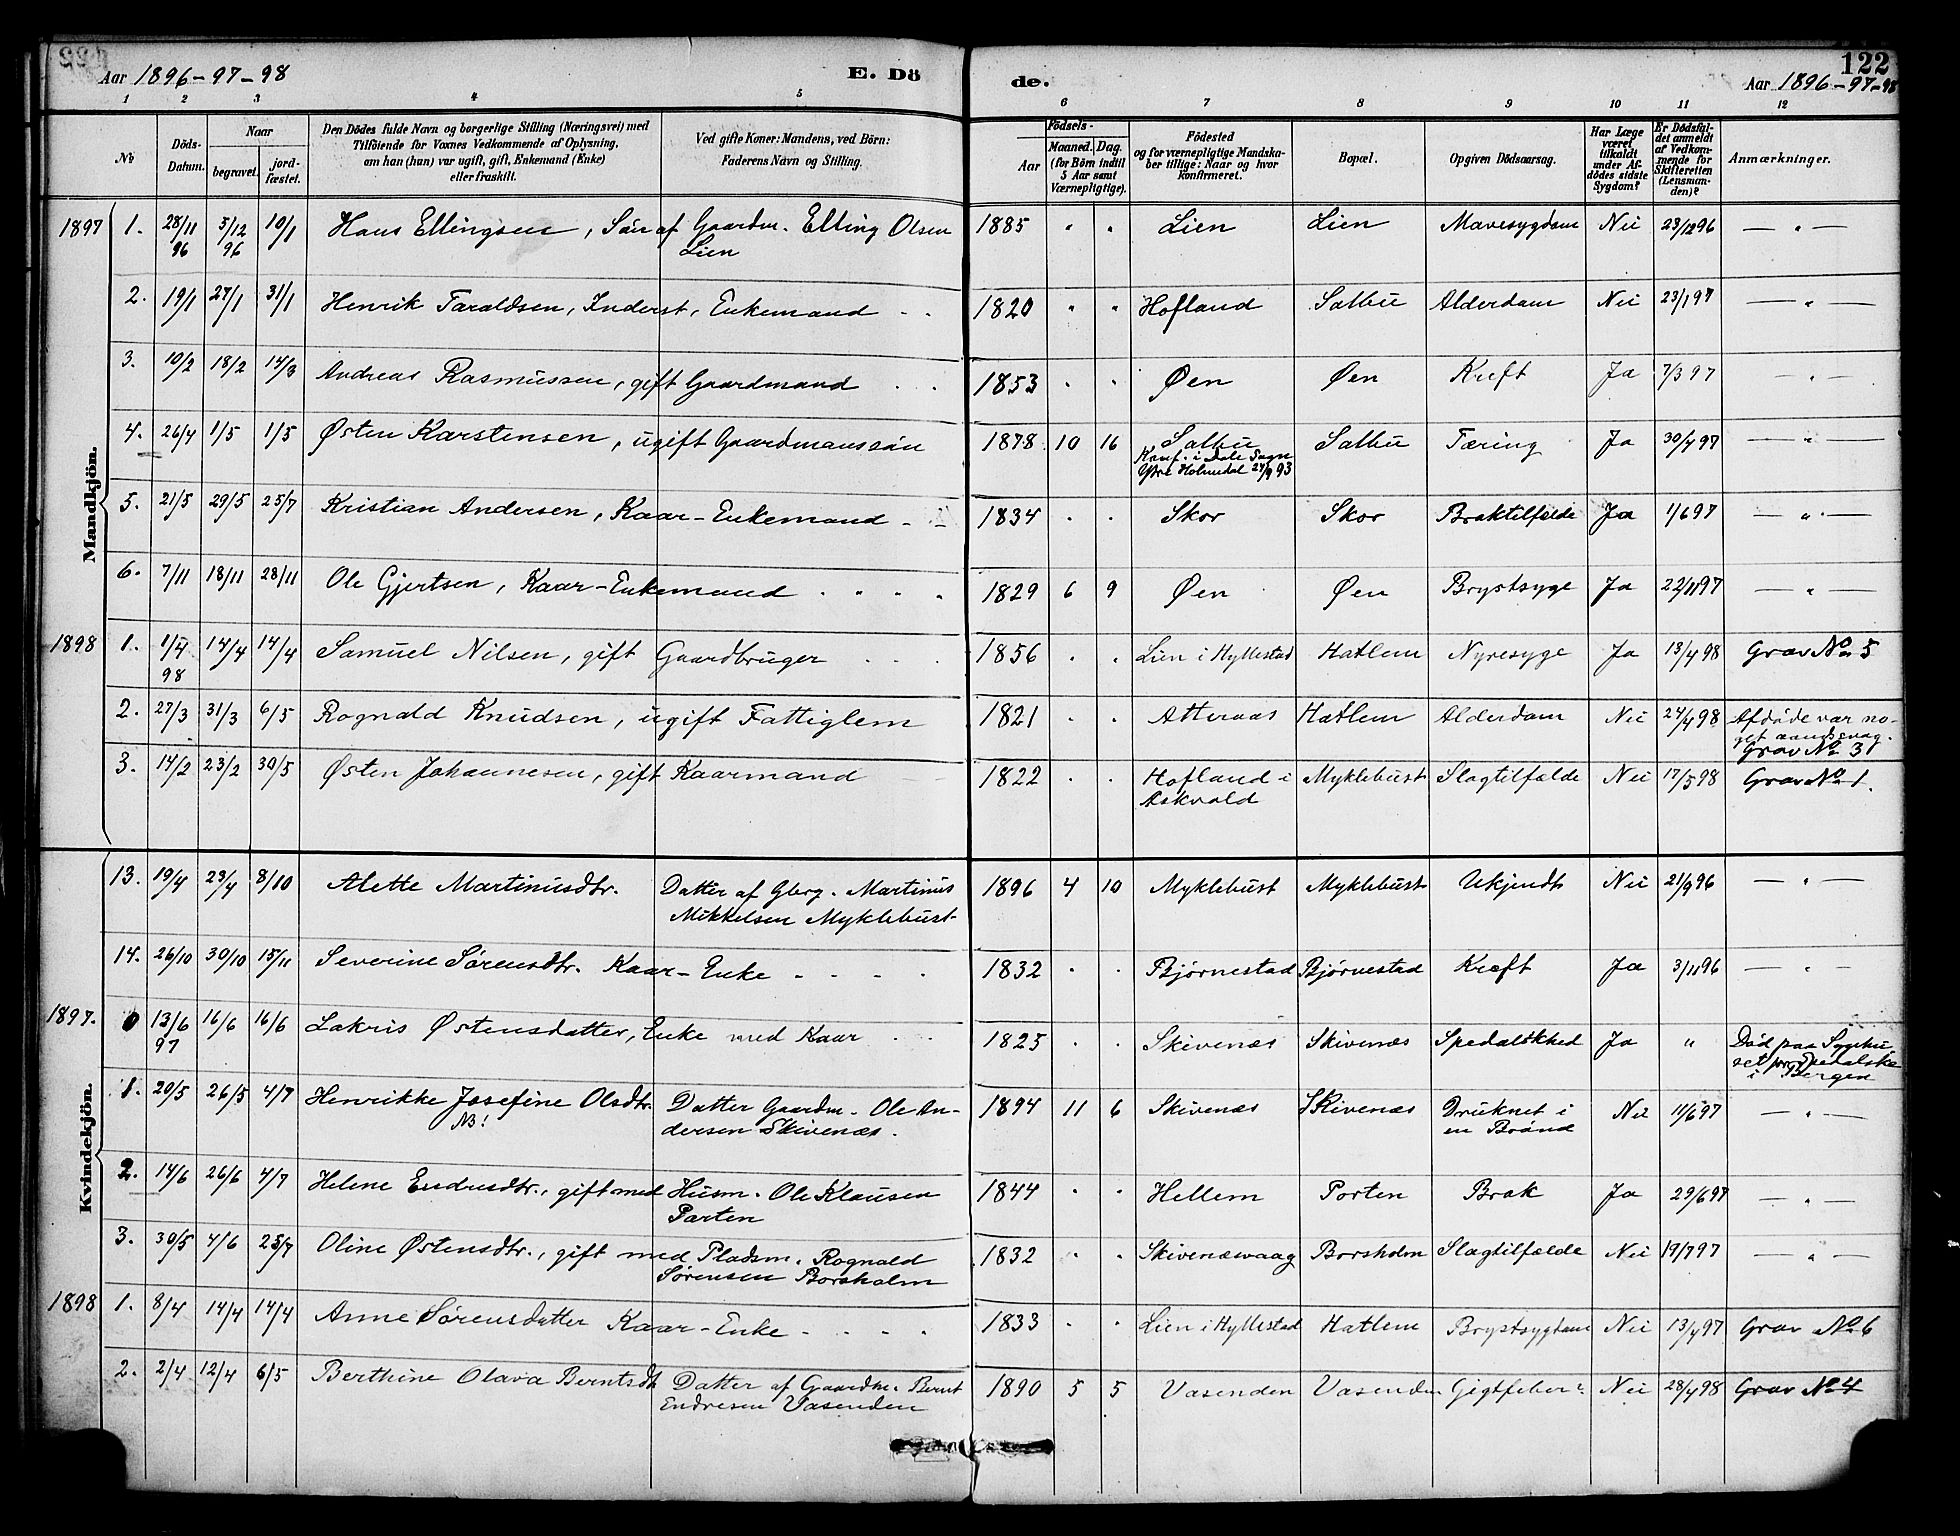 Aar 1896-97-98 E. Dö
de. 122
Aar 1896-97-98
1 2 3 4 5 6 7 8 9 10 11 12
No
Döds-Datum.
Naar
begravet.
jordfæstet.
Den Dödes fulde Navn og borgerlige Stilling (Næringsvei) med
Tilföiende for Voxnes Vedkommende af Oplysning,
om han (hun) var ugift, gift, Enkemand (Enke)
eller fraskilt.
Ved gifte Koner: Mandens, ved Börn:
Faderens Navn og Stilling.
Födsels-
Aar
Maaned. Dag.
(for Börn indtil
5 Aar samt
Værnepligtige).
Födested
og for værnepligtige Mandska-
ber tillige: Naar og hvor
konfirmeret.
Bopæl.
Opgiven Dödsaarsag.
Har Læge
været
tilkaldt
under Af-
dödes sidste
Sygdom?
Er Dödsfal-
det anmeldt
af Vedkom-
mende for
Skifteretten
(Lensman-
den)?
Anmærkninger.
Mandkjön.
1897 1. 28/11 96 5/12 96 10/1 Hans Ellingsen, Sön af Gaardm. Elling Olsen Lien 1885 " " Lien Lien Mavesygdom Nei 23/12 96 — " —
2. 19/1 27/1 31/1 Henrik Taraldsen, Inderst, Enkemand - - 1820 " " Hofland Salbu Alderdom Nei 23/1 97 — " —
3. 10/2 18/2 14/3 Andreas Rasmussen, gift Gaardmand - - 1853 " " Øen Øen Kreft Ja 7/3 97 — " —
4. 26/4 1/5 1/5 Østen Karstensen, ugift Gaardmanssön 1878 10 16 Salbu
Konf. i Dale Sogn
Ytre Holmedal 24/9 93 Salbu Tæring Ja 30/4 97 — " —
5. 21/5 29/5 25/7 Kristian Andersen, Kaar-Enkemand - - 1834 " " Skor Skor Braktilfælde Ja 1/6 97 — " —
6. 7/11 18/11 28/11 Ole Gjertsen, Kaar-Enkemand - - - - 1829 6 9 Øen Øen Brystsyge Ja 22/11 97 — " —
1898 1. 1/4 98 14/4 14/4 Samuel Nilsen, gift Gaardbruger - - - 1856 " " Lien i Hyllestad Hatlem Nyresyge Ja 13/4 98 Grav No 5
2. 27/3 31/3 6/5 Rognald Knudsen, ugift Fattiglem 1821 " " Atteraas Hatlem Alderdom Nei 24/4 98 Afdöde var no-
get aandssvag.
Grav No 3
3. 14/2 23/2 30/5 Østen Johannesen, gift Kaarmand 1822 " " Hofland i
Askvold Myklebust Slagtilfælde Nei 17/5 98 Grav No 1.
Kvindekjön.
13. 19/4 23/4 8/10 Alette Martinusdtr. Datter af Gbrg. Martinus
Mikkelsen Myklebust 1896 4 10 Myklebust Myklebust Ukjendt Nei 21/9 96 — " —
14. 26/10 30/10 15/11 Severine Sørensdtr. Kaar-Enke - - - - 1832 " " Bjørnestad Bjørnestad Kreft Ja 3/11 96 — " —
1897. 0 13/6 97 16/6 16/6 Lakris Østensdatter, Enke med Kaar - - 1825 " " Skivenæs Skivenæs Spedalskhed Ja " Död paa Sygehu-
set for Spedalske
i Bergen
1. 20/5 26/5 4/7 Henrikke Josefine Olsdtr.
NB! Datter Gaardm. Ole An-
dersen Skivenæs. 1894 11 6 Skivenæs Skivenæs Druknet i
en Brönd Nei 11/6 97 — " —
2. 14/6 26/6 4/7 Helene Endresdtr., gift med Husm. Ole Klausen
Porten 1844 " " Hellem Porten Brok Ja 29/6 97 — " —
3. 30/5 4/6 25/7 Oline Østensdtr., gift med Pladsm. Rognald
Sørensen Borsholm 1832 " " Skivenæsvaag Borsholm Slagtilfælde Nei 19/7 97 — " —
1898 1. 8/4 14/4 14/4 Anne Sørensdatter Kaar-Enke - - - - 1833 " " Lien i Hyllestad Hatlem Brystsygdom Nei 13/4 97 Grav No 6
2. 2/4 12/4 6/5 Berthine Olava Berntsdt. Datter af Gaardm. Bernt
Endresen Vasenden 1890 5 5 Vasenden Vasenden Gigtfeber Nei 28/4 98 Grav No 4